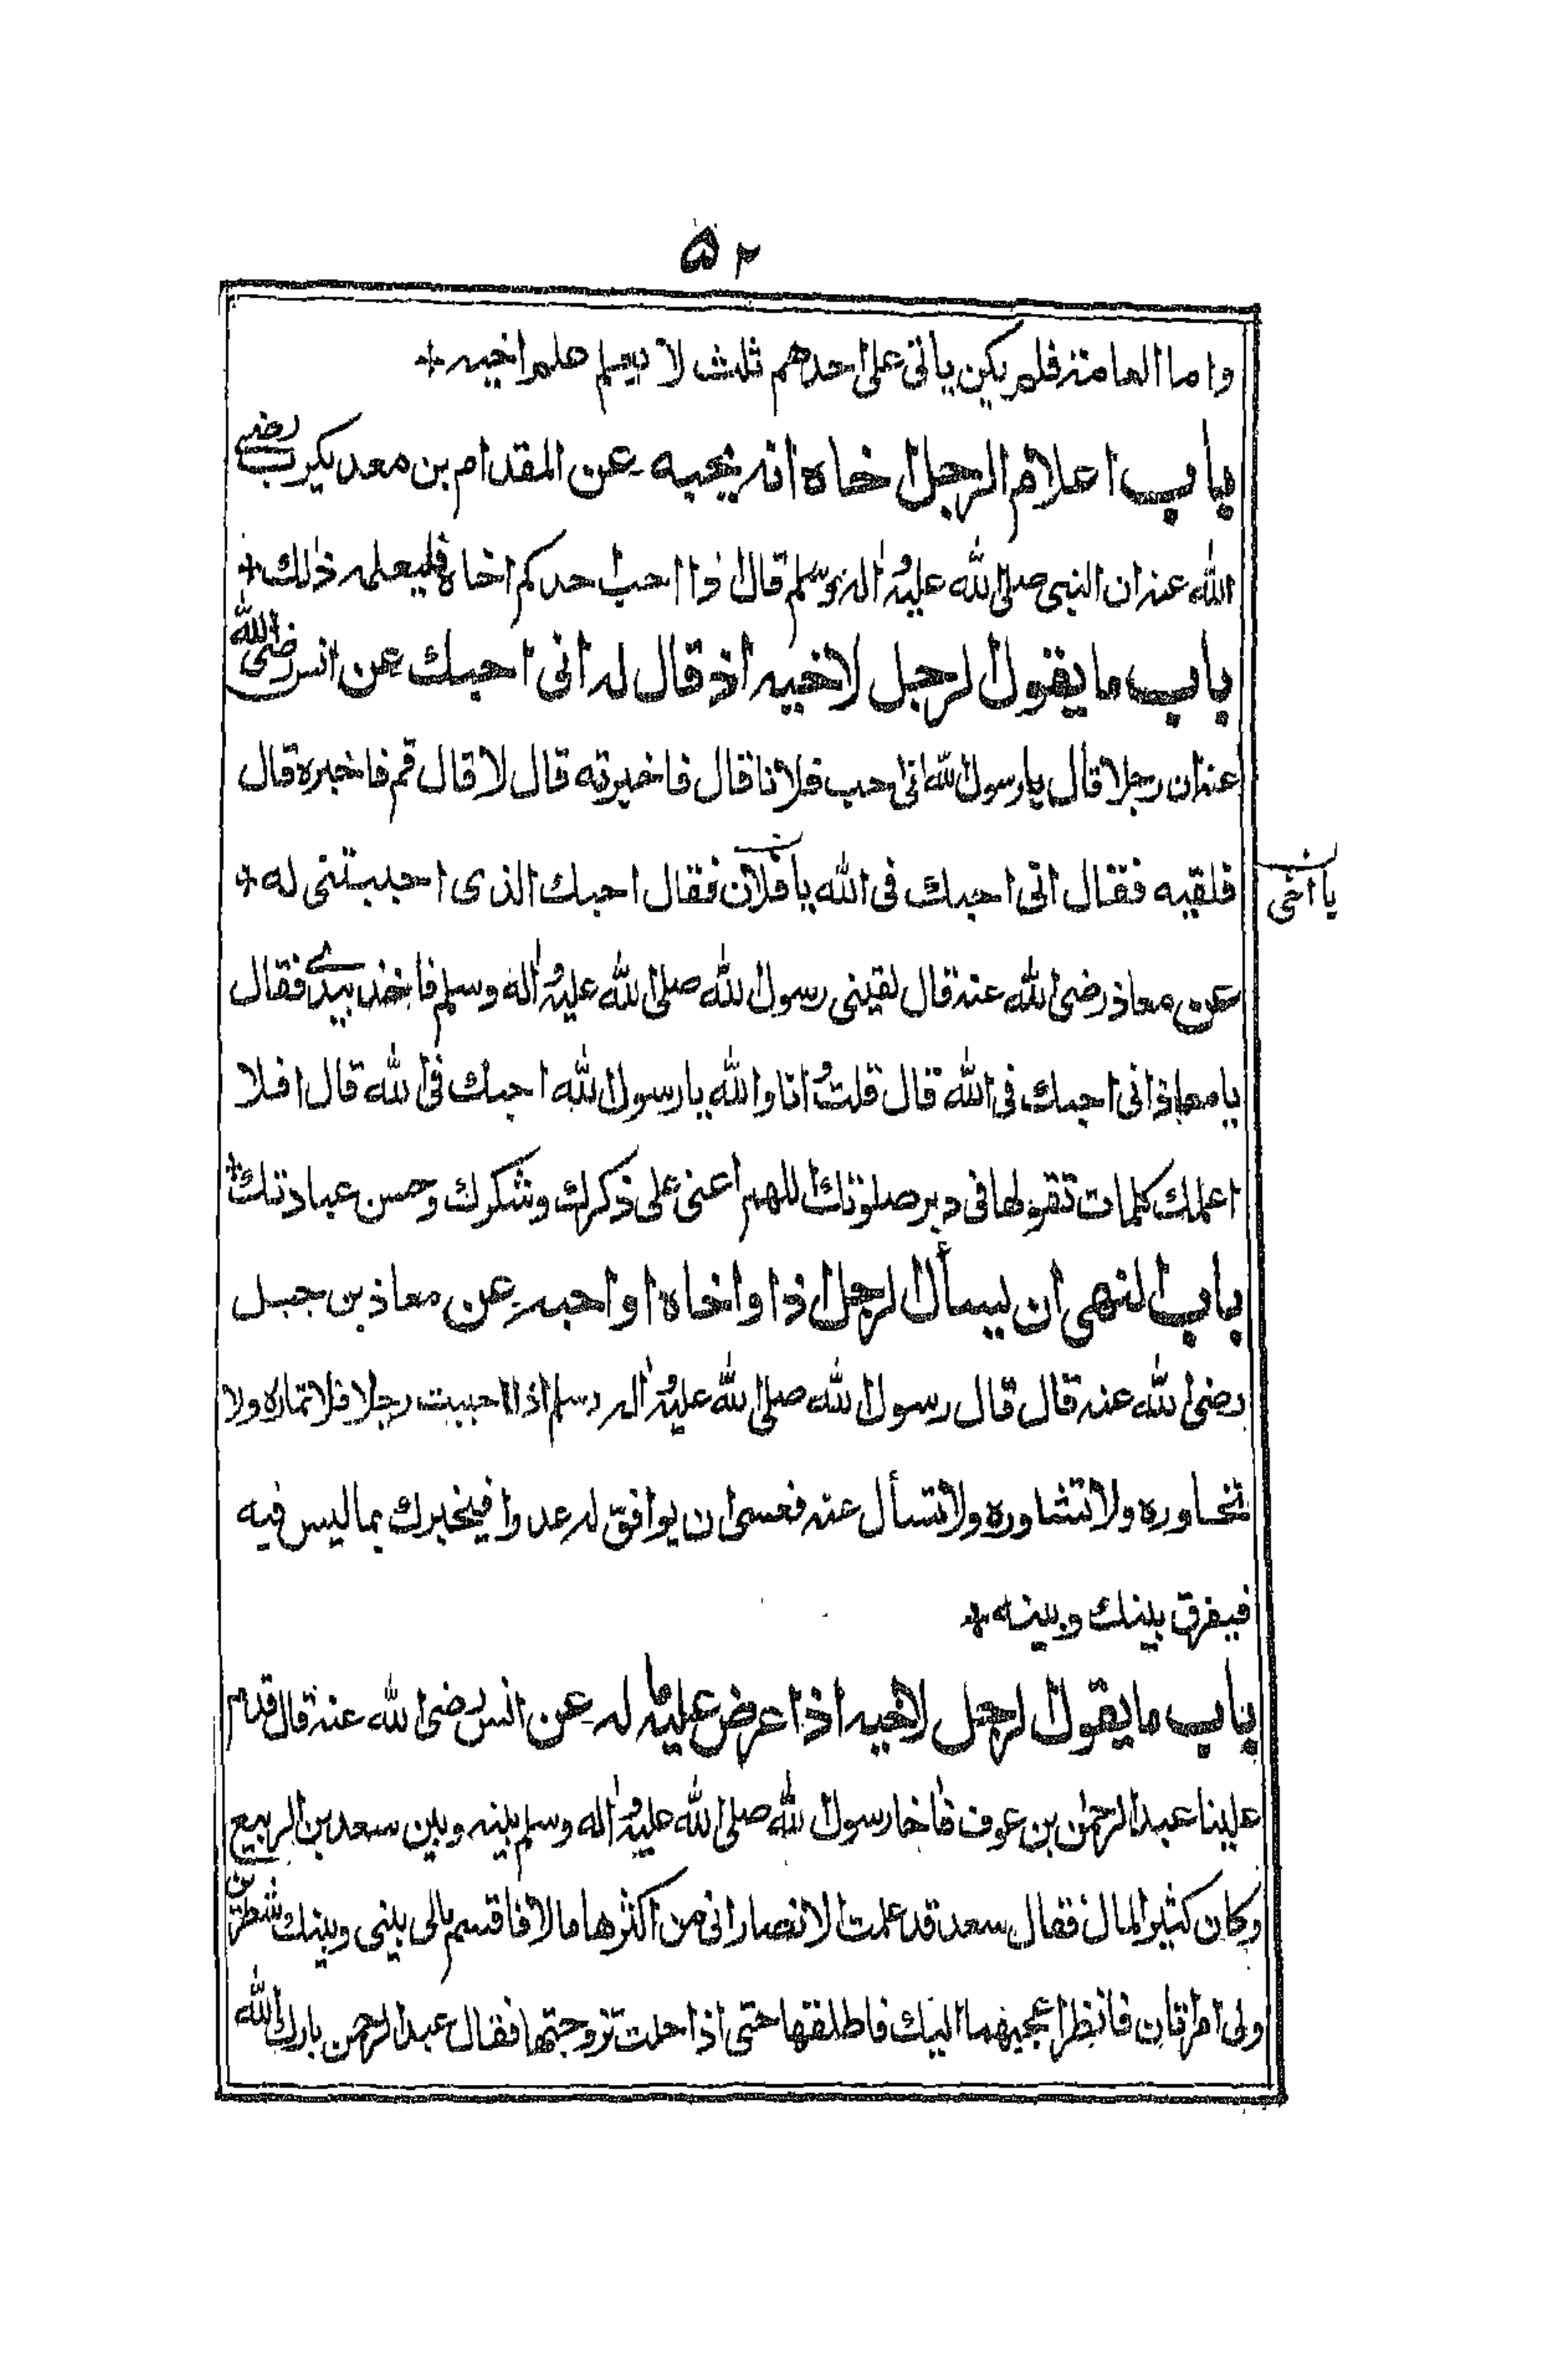 ۵۲
واما العامة فلم يكن ياتى على احدهم ثلث لا يعلم علم اخيه +
باب اعلام الرجل اخاه انه يحبه عن المقدام بن معد يكرب رضى
الله عنه ان النبى صلى الله عليه واله وسلم قال اذا احب احدكم اخاه فليعلمه ذلك +
باب ما يقول الرجل لاخيه اذ قال له انى احبك عن انس رضى الله
عنه ان رجلا قال يارسول الله انى احب فلانا قال فاخبرته قال لا قال قم فاخبره قال
فلقيه فقال انى احبك فى الله يا فلان فقال احبك الذى احببتنى له +
يا اخى
عن معاذ رضى الله عنه قال لقينى رسول الله صلى الله عليه واله وسلم فاخذ بيدے فقال
يا معاذ انى احبك فى الله قال قلت وانا والله يارسول الله احبك فى الله قال افلا
اعلمك كلمات تقولها فى دبر صلوتك اللهم اعنى على ذكرك وشكرك وحسن عبادتك +
باب النهى ان يسأل الرجل اذا واخاه او احبه عن معاذ بن جبل
رضى الله عنه قال قال رسول الله صلى الله عليه واله وسلم اذا احببت رجلا فلا تماره ولا
تحاوره ولا تشاوره ولا تسأل عنه فعسى ان يوافق له عدوا فيخبرك بما ليس فيه
فيفرق بينك وبينه +
باب ما يقول الرجل لاخيه اذا عرض عليه ما له عن انس رضى الله عنه قال قدم
علينا عبد الرحمٰن بن عوف فاخا رسول الله صلى الله عليه واله وسلم بينه وبين سعد بن الربيع
وكان كثير المال فقال سعد قد علمت الانصار انى من اكثرها مالا فاقسم مالى بينى وبينك شطرين
ولى امراتان فانظر اعجبهما اليك فاطلقها حتى اذا حلت تزوجتها فقال عبد الرحمن بارك الله